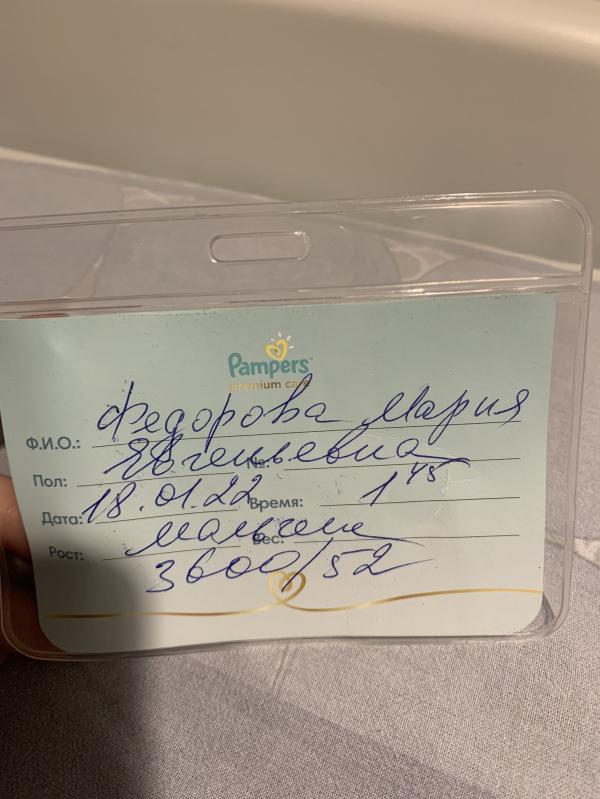 Pampers
premium care
Ф.И.О.: Федорова Мария
Пол: Евгеньевна №:
Дата: 18.01.22 Время: 1 45
Рост: мальчик Вес:
3600/52